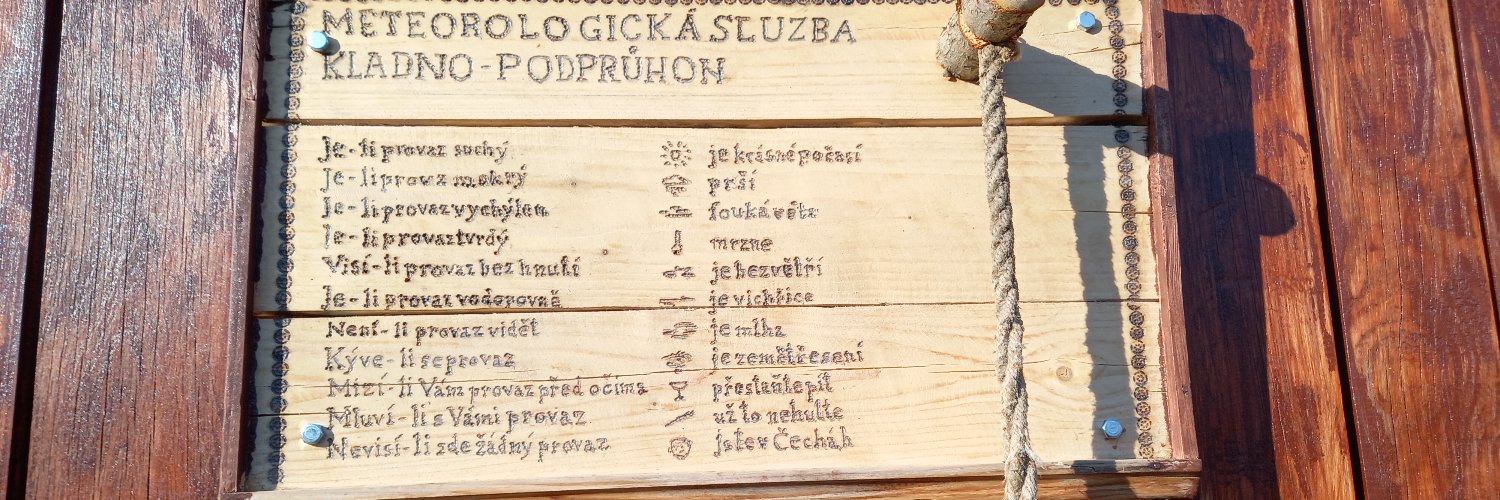 METEOROLOGICKÁ SLUZBA
KLADNO - PODPRŮHON
Je-li provaz suchý je krásné počasí
Je-li provaz mokrý prší
Je-li provaz vychýlen fouká vítr
Je-li provaz tvrdý mrzne
Visí-li provaz bez hnutí je bezvětří
Je-li provaz vodorovně je vichřice
Není-li provaz vidět je mlha
Kýve-li se provaz je zemětřesení
Mizí-li Vám provaz před očima přestaňte pít
Mluví-li s Vámi provaz už to nehulte
Nevisí-li zde žádný provaz jste v Čechách